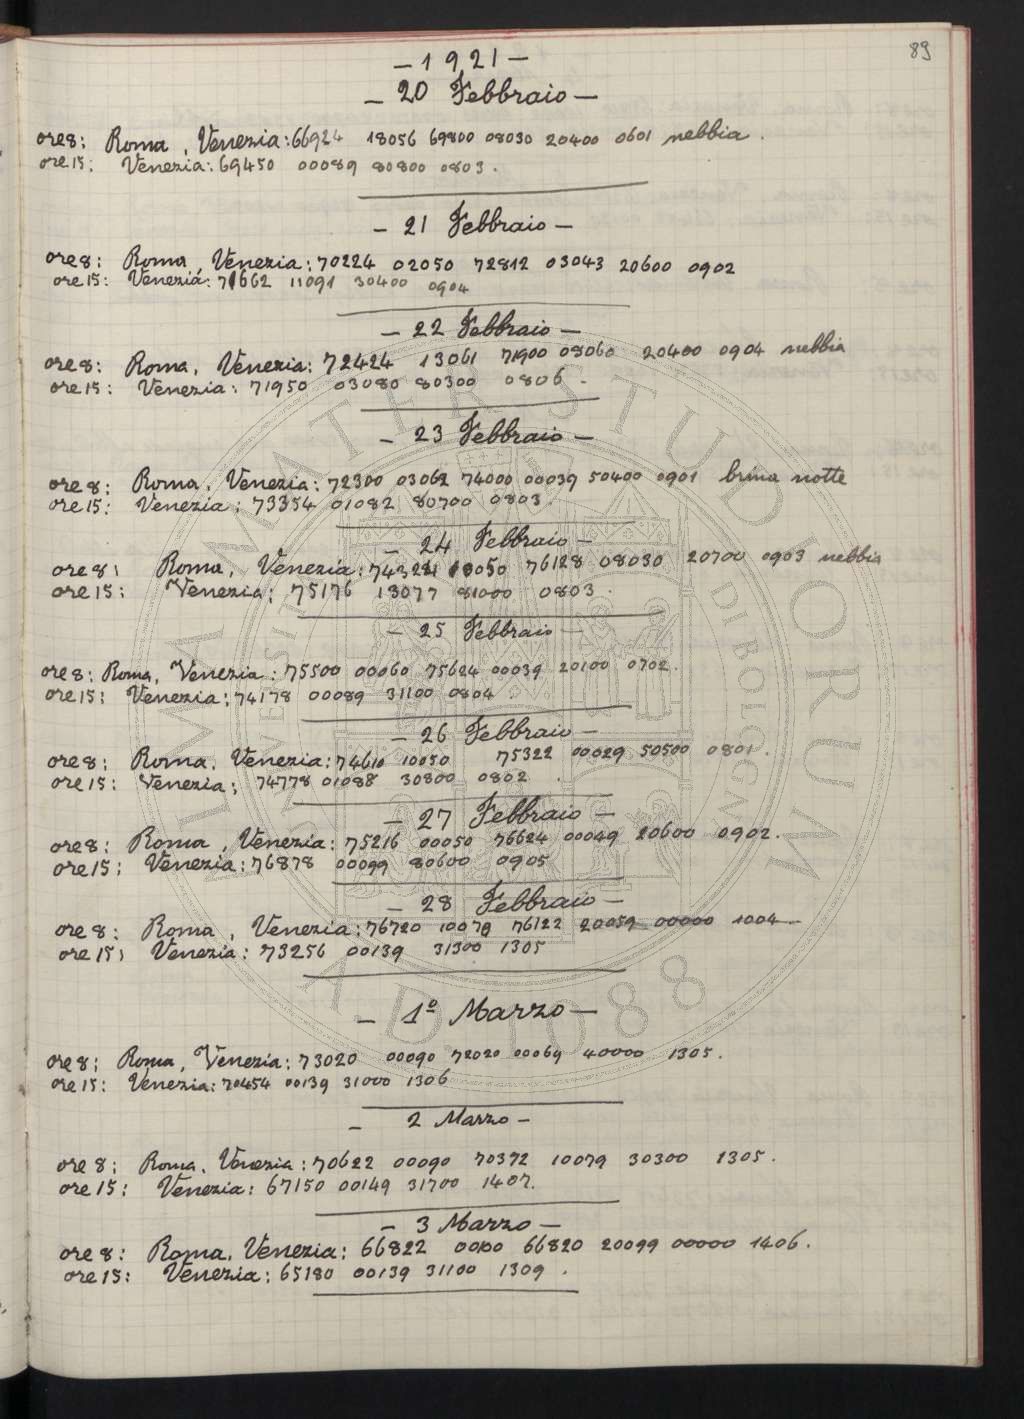 89
– 1921 –
– 20 Febbraio –
ore 8: Roma, Venezia: 66924 18056 69800 08030 20400 0601 nebbia.
ore 15: Venezia: 69450 00089 80800 0803.
– 21 Febbraio –
ore 8: Roma, Venezia: 70224 02050 72812 03043 20600 0902
ore 15: Venezia: 71662 11091 30400 0904
– 22 Febbraio –
ore 8: Roma, Venezia: 72424 13061 71900 08060 20400 0904 nebbia
ore 15: Venezia: 71950 03080 80300 0806.
– 23 Febbraio –
ore 8: Roma, Venezia: 72300 03062 74000 00039 50400 0901 brina notte
ore 15: Venezia: 73354 01082 80700 0803.
– 24 Febbraio –
ore 8: Roma, Venezia: 76128 08030 20700 0903 nebbia
ore 15: Venezia: 75176 13077 81000 0803.
– 25 Febbraio –
ore 8: Roma, Venezia: 75500 00060 75624 00039 20100 0702.
ore 15: Venezia: 74178 00089 31100 0804.
– 26 Febbraio –
ore 8: Roma, Venezia: 74610 10050 75322 00029 50500 0801.
ore 15: Venezia: 74778 01088 30800 0802.
– 27 Febbraio –
ore 8: Roma, Venezia: 75216 00050 76624 00049 20600 0902.
ore 15: Venezia: 76878 00099 80600 0905
– 28 Febbraio –
ore 8: Roma, Venezia: 76720 10079 76122 20059 00000 1004
ore 15: Venezia: 73256 00139 31300 1305
– 1º Marzo –
ore 8: Roma, Venezia: 73020 00090 72020 00069 40000 1305.
ore 15: Venezia: 70454 00139 31000 1306
– 2 Marzo –
ore 8: Roma, Venezia: 70622 00090 70372 10079 30300 1305.
ore 15: Venezia: 67150 00149 31700 1407.
– 3 Marzo –
ore 8: Roma, Venezia: 66822 00100 66820 20099 00000 1406.
ore 15: Venezia: 65180 00139 31100 1309.
ALMA MATER STUDIORUM
UNIVERSITÀ DI BOLOGNA
A.D. 1088